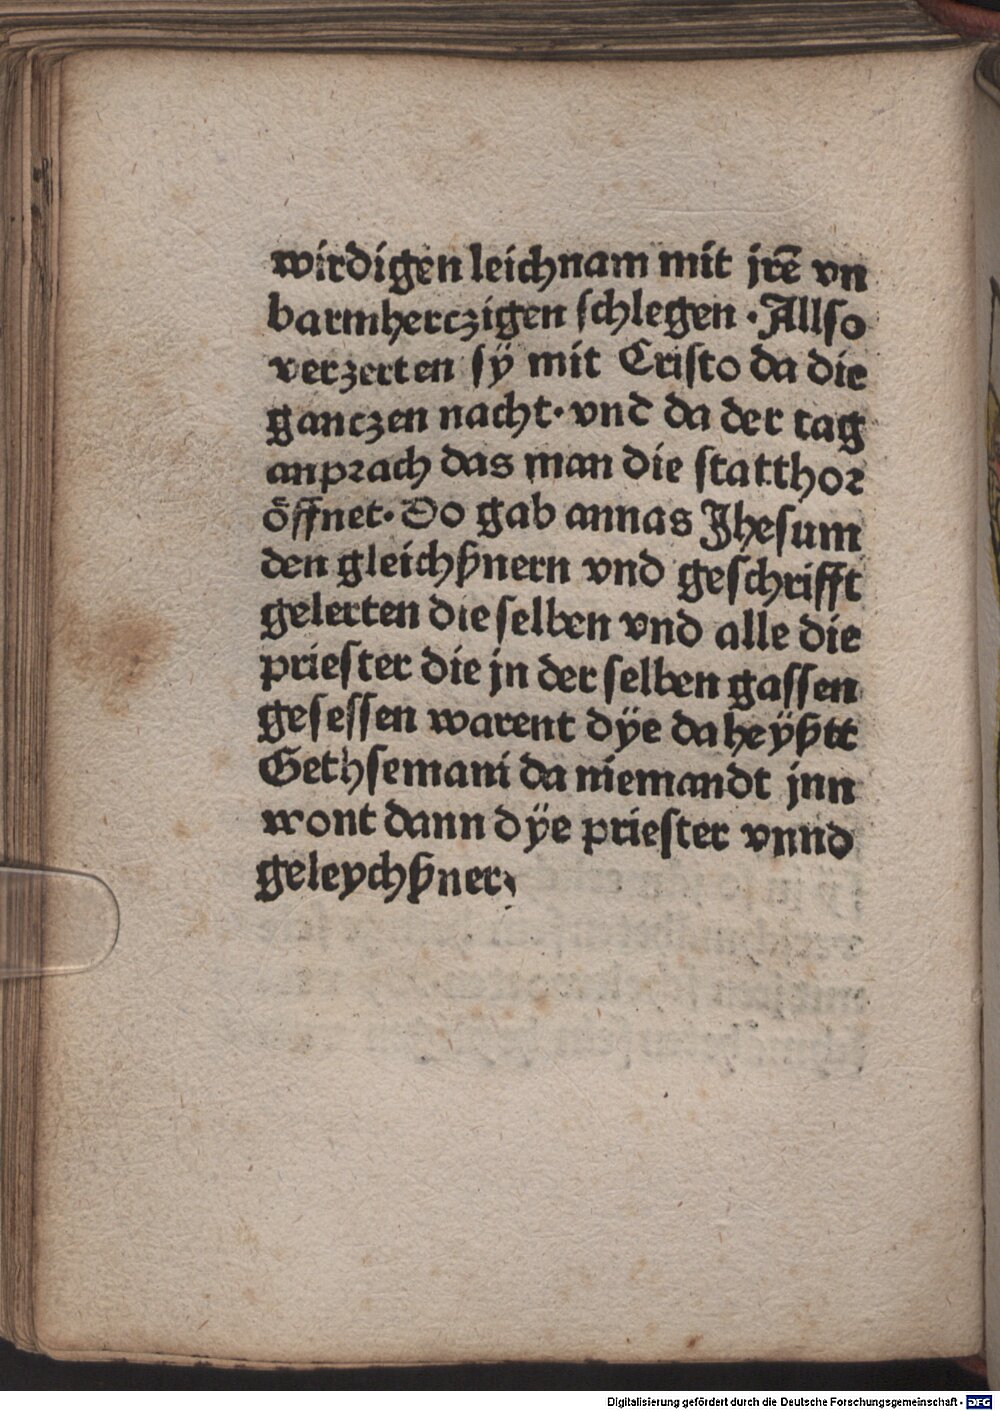 wirdigen leichnam mit jrē vn
barmherczigen ſchlegen · Allſo
verzerten ſÿ mit Criſto da die
ganczen nacht · vnd da der tag
anpꝛach das man die ſtatthoꝛ
öffnet · Do gab annas Jheſum
den gleichßnern vnd geſchrifft
gelerten die ſelben vnd alle die
prieſter die jn der ſelben gaſſen
geſeſſen warent dÿe da heÿßtt
Gethſemani da niemandt jnn
wont dann dÿe prieſter vnnd
geleychßner
Digitalisierung gefördert durch die Deutsche Forschungsgemeinschaft - DFG